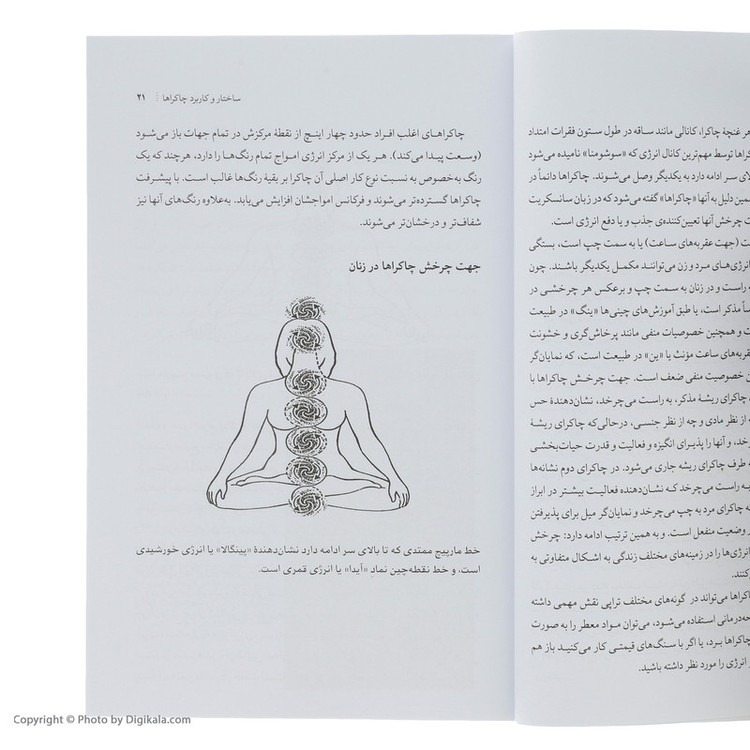 هر غنچهٔ چاکرا، کانالی مانند ساقه در طول ستون فقرات امتداد
اکراها توسط مهم‌ترین کانال انرژی که «سوشومنا» نامیده می‌شود
لای سر ادامه دارد به یکدیگر وصل می‌شوند. چاکراها دائماً در
مین دلیل به آنها «چاکراها» گفته می‌شود که در زبان سانسکریت
ت چرخش آنها تعیین‌کننده‌ی جذب و یا دفع انرژی است.
ت (جهت عقربه‌های ساعت) یا به سمت چپ است، بستگی
انرژی‌های مرد و زن می‌توانند مکمل یکدیگر باشند. چون
ه راست و در زنان به سمت چپ و برعکس هر چرخشی در
ساً مذکر است، یا طبق آموزش‌های چینی‌ها «ینگ» در طبیعت
ت و همچنین خصوصیات منفی مانند پرخاش‌گری و خشونت
عقربه‌های ساعت مؤنث یا «ین» در طبیعت است، که نمایان‌گر
ن خصوصیت منفی ضعف است. جهت چرخش چاکراها با
چاکرای ریشهٔ مذکر، به راست می‌چرخد، نشان‌دهندهٔ حس
ه از نظر مادی و چه از نظر جنسی، درحالی‌که چاکرای ریشهٔ
خرد، و آنها را پذیرای انگیزه و فعالیت و قدرت حیات‌بخشی
ه طرف چاکرای ریشه جاری می‌شود. در چاکرای دوم نشانه‌ها
به راست می‌چرخد که نشان‌دهنده فعالیت بیشتر در ابراز
ه چاکرای مرد به چپ می‌چرخد و نمایان‌گر میل برای پذیرفتن
ر وضعیت منفعل است. و به همین ترتیب ادامه دارد: چرخش
انرژی‌ها را در زمینه‌های مختلف زندگی به اشکال متفاوتی به
کنند.
اکراها می‌تواند در گونه‌های مختلف تراپی نقش مهمی داشته
حه‌درمانی استفاده می‌شود، می‌توان مواد معطر را به صورت
چاکراها برد، یا اگر با سنگ‌های قیمتی کار می‌کنید باز هم
انرژی را مورد نظر داشته باشید.
ساختار و کاربرد چاکراها | ۲۱
چاکراهای اغلب افراد حدود چهار اینچ از نقطهٔ مرکزش در تمام جهات باز می‌شود
(وسعت پیدا می‌کند). هر یک از مرکز انرژی امواج تمام رنگ‌ها را دارد، هرچند که یک
رنگ به‌خصوص به نسبت نوع کار اصلی آن چاکرا بر بقیهٔ رنگ‌ها غالب است. با پیشرفت
چاکراها گسترده‌تر می‌شوند و فرکانس امواجشان افزایش می‌یابد. به‌علاوه رنگ‌های آنها نیز
شفاف‌تر و درخشان‌تر می‌شوند.
جهت چرخش چاکراها در زنان
خط مارپیچ ممتدی که تا بالای سر ادامه دارد نشان‌دهندهٔ «پینگالا» یا انرژی خورشیدی
است. و خط نقطه‌چین نمادِ «آیدا» یا انرژی قمری است.
Copyright © Photo by Digikala.com